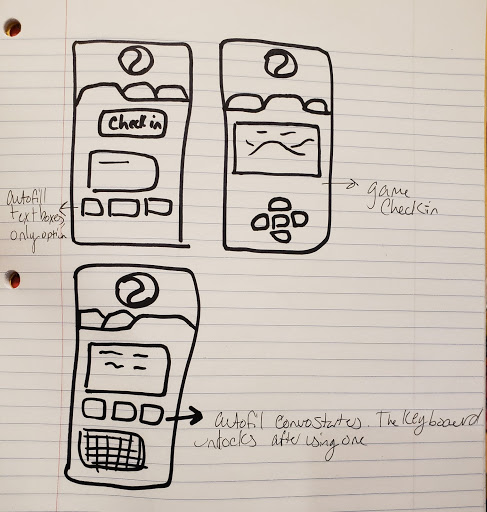 Check in
autofill
text boxes
only option
game
Checkin
autofil convo states. The Keyboard
unlocks after using one